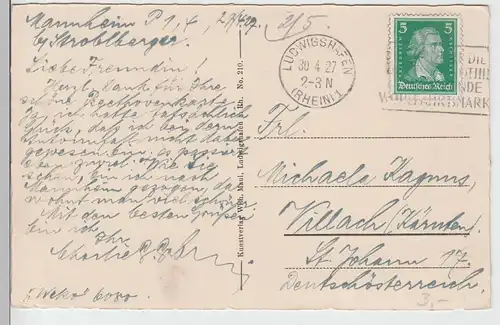 Mannheim P 1.4, 29/4.27.
b/ Stroblberger.
Liebe Freundin!
Herzl. Dank für Ihre
schöne Beethovenkarte.
Ja, ich hatte tatsächlich
Glück, daß ich bei dem
nicht dabei
gewesen bin,
Wie Sie
sehen, bin ich nach
Mannheim gezogen, da
wohnt man viel
Mit den besten Grüßen
bin ich
Ihr
Charlie
2/5.
Kunstverlag Wilh. Maul, Ludwigshafen a. Rh. No. 210.
LUDWIGSHAFEN
30.4.27
2-3 N
(RHEIN) 1
5 5
Deutsches Reich
DIE
WOHLFAHRTSMARK
Frl.
Michaela Kagnus,
Villach (Kärnten).
St. Johann 17.
Deutschösterreich.
3,-